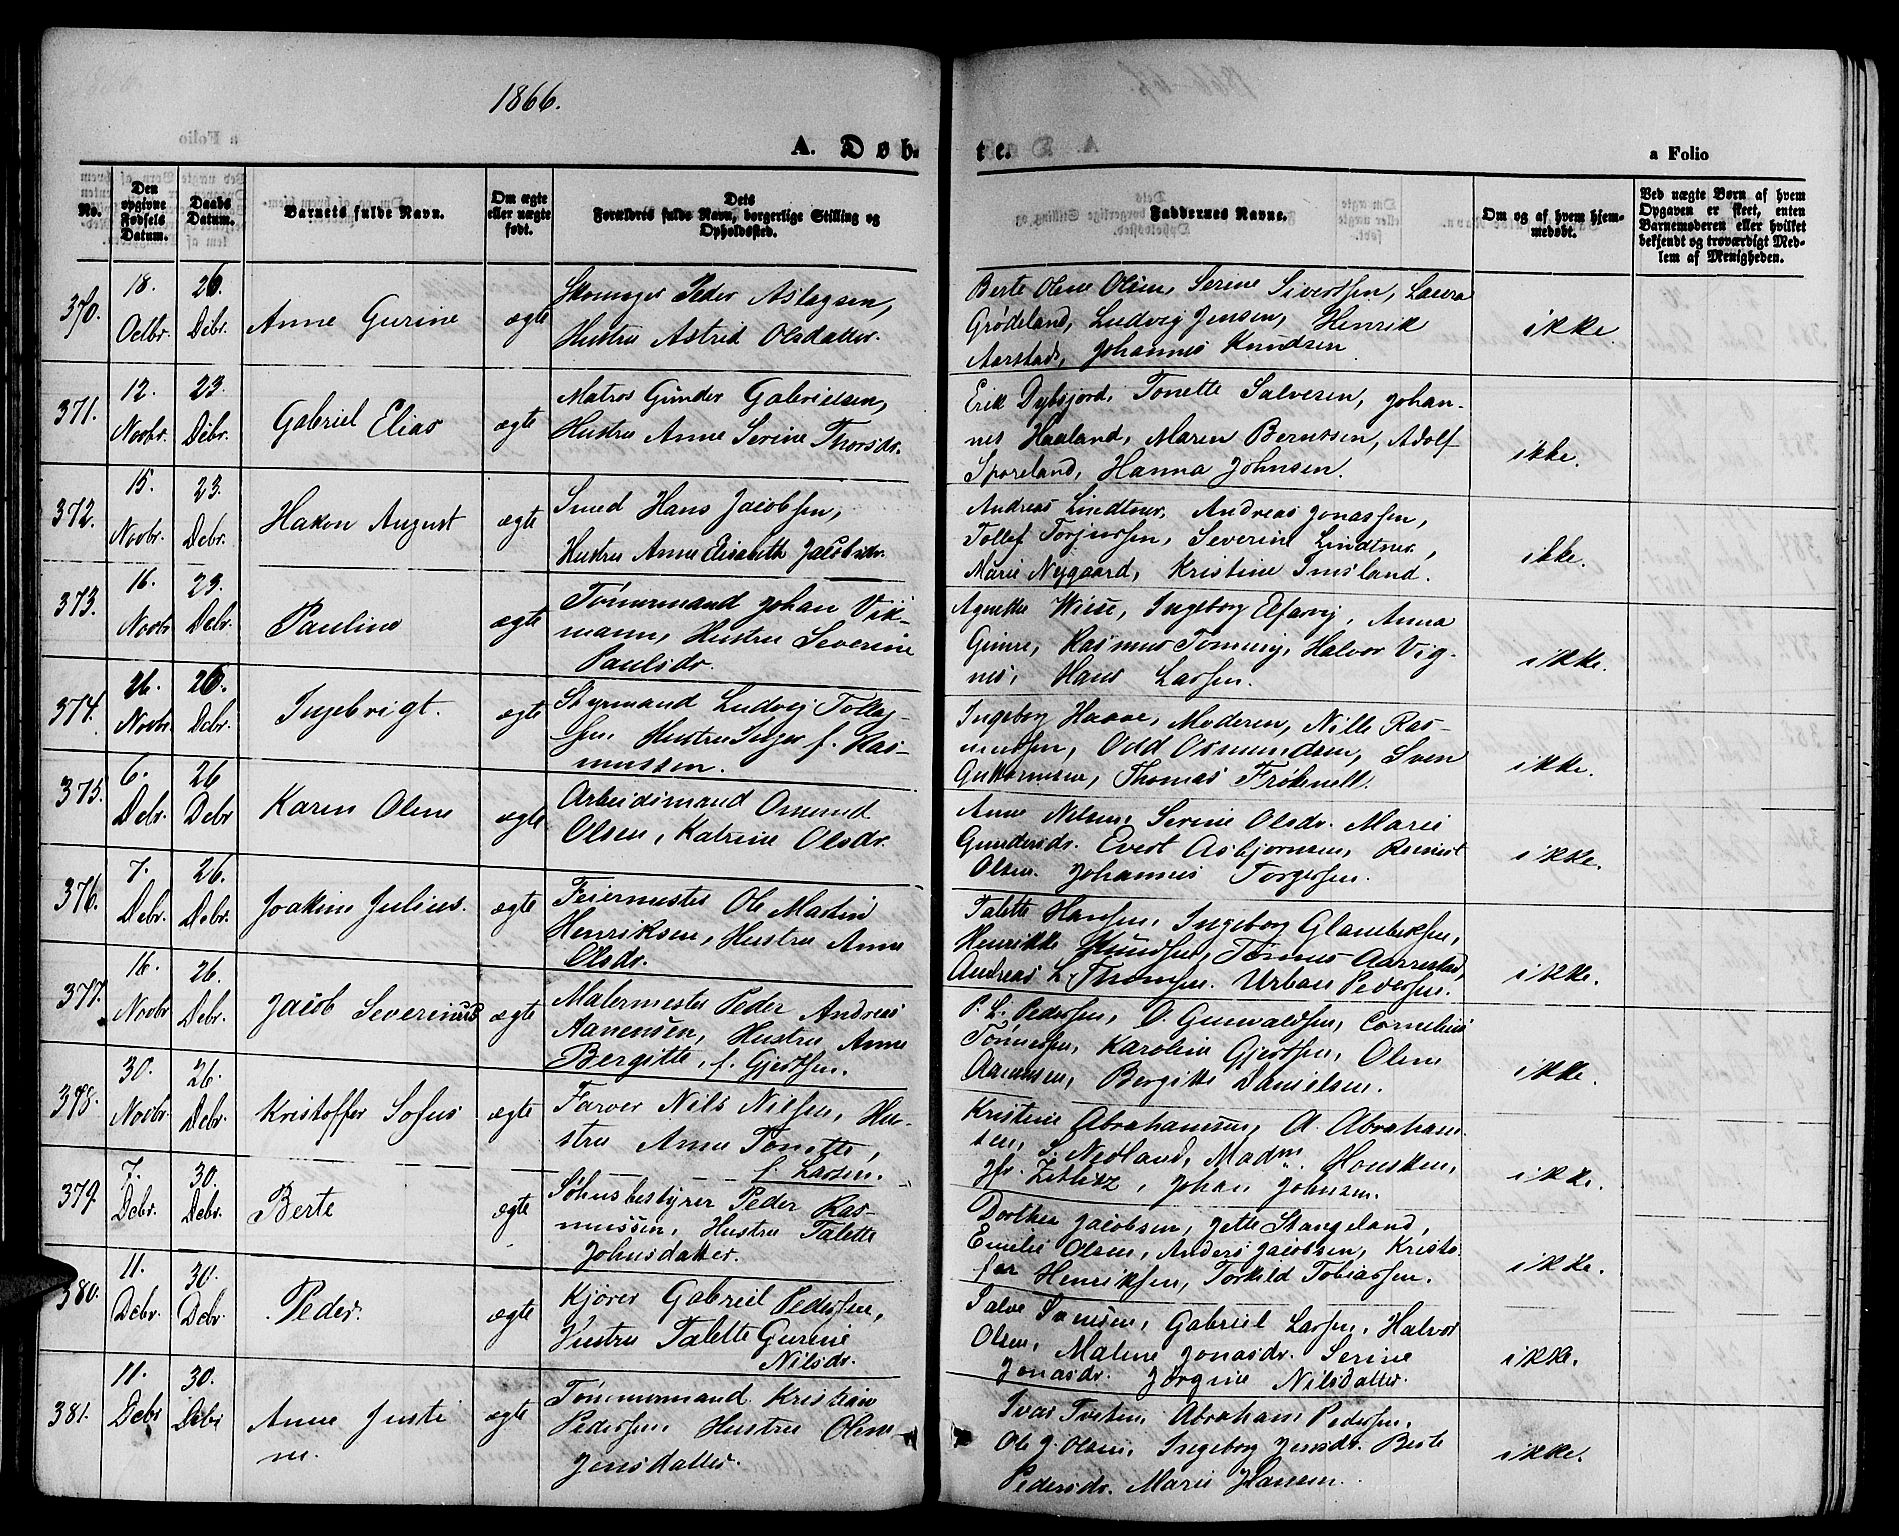 1866.
A. Døb-
te.
a Folio
No.
Den opgivne Fødsels Datum.
Daabs Datum.
Barnets fulde Navn.
Om ægte eller uægte født.
Dets Forældres fulde Navn, borgerlige Stilling og Opholdssted.
Faddernes Navne.
Om og af hvem hjemmedøbt.
Ved uægte Børn af hvem Opgaven er skeet, enten Barnemoderen eller hvilket bekjendt og troværdigt Medlem af Menigheden.
370. 18. Octbr. 26. Debr. Anne Gurine ægte
Skomager Peder Aslagsen,
Hustru Astrid Olsdatter.
Berte Olene Olsen, Serine Sivertsen, Laura
Grødeland, Ludvig Jensen, Henrik
Aarstad, Johannes Knudsen
ikke.
371. 12. Novbr. 23. Debr. Gabriel Elias ægte
Matros Gunder Gabrielsen,
Hustru Anne Serine Thorsdr.
Erik Dybsjord, Tonette Salvesen, Johan-
nes Haaland, Maren Berntsen, Adolf
Sporeland, Hanna Johnsen.
ikke.
372. 15. Novbr. 23. Debr. Hakon August ægte
Smed Hans Jacobsen,
Hustru Anne Elisabeth Jacobsdr.
Andreas Lindtner, Andreas Jonassen,
Tollef Torjussen, Severine Lindtner,
Marie Nygaard, Kristine Imsland.
ikke.
373. 16. Novbr 23. Debr. Pauline ægte
Tømermand Johan Vik-
mann, Hustru Severine
Paulsdr.
Agnethe Wiese, Ingeborg Elfarvig, Anna
Gimre, Rasmus Tonning, Halvor Vig-
nes, Hans Larsen.
ikke.
374. 26. Novbr 26. Debr. Ingebrigt. ægte
Styrmand Ludvig Tollag-
sen Hustru Inger f. Ras-
mussen.
Ingeborg Haave, Moderen, Nille Ras-
mussen, Odd Osmundsen, Sven
Guttormsen, Thomas
ikke.
375. 6. Debr. 26 Debr Karen Olene ægte
Arbeidsmand Osmund
Olsen, Katrine Olsdr.
Anne Nilsen, Serine Olsdr. Marie
Gundersdr. Evert Asbjørnsen, Reinert
Olsen. Johannes Torgersen.
ikke.
376. 7. Debr. 26. Debr. Joakim Julius. ægte
Feiermester Ole Martin
Henriksen, Hustru Anne
Olsdr.
Talette Hansen, Ingeborg
Henrikke Knudsen, Tønnes Aarrestad,
Andreas L. Thomsen. Urban Pedersen.
ikke.
377. 16. Novbr 26. Debr. Jacob Severinus ægte
Malermester Peder Andreas
Aanensen, Hustru Anne
Bergitte, f. Gjertsen.
P. L. Pedersen, D. Gunvaldsen, Cornelius
Tønnessen, Karoline Gjertsen, Olene
Aanensen, Bergitte Danielsen.
ikke.
378. 30. Novbr 26. Debr. Kristoffer Sofus ægte
Farver Nils Nilsen, Hu-
stru Anne Tonette,
f. Larsen.
Kristine Abrahamsen, A. Abraham-
sen, S. Nedland, Madm. Housken,
Jfr. Zetlitz, Johan Johnsen.
ikke.
379 7. Debr. 30. Debr. Berte ægte
Søhusbestyrer Peder Ras-
mussen, Hustru Talette
Johnsdatter.
Dorthea Jacobsen, Jette Stangeland,
Emilie Olsen, Anders Jacobsen, Kristo-
fer Henriksen, Torkild Tobiassen.
ikke.
380. 11. Debr. 30. Debr. Peder. ægte
Kjører Gabriel Pedersen,
Hustru Talette Gurine
Nilsdr.
Salve Samsen, Gabriel Larsen, Halvor
Olsen, Malene Jonasdr. Serine
Jonasdr. Jørgine Nilsdatter.
ikke.
381. 11. Debr 30. Debr Anne Justi
ne. ægte
Tømmermand Kristian
Pedersen, Hustru Olene
Jensdatter.
Ivar Tveten, Abraham Pedersen,
Ole J. Olsen, Ingeborg Jensdr. Berte
Pedersdr. Marie Hansen.
ikke.